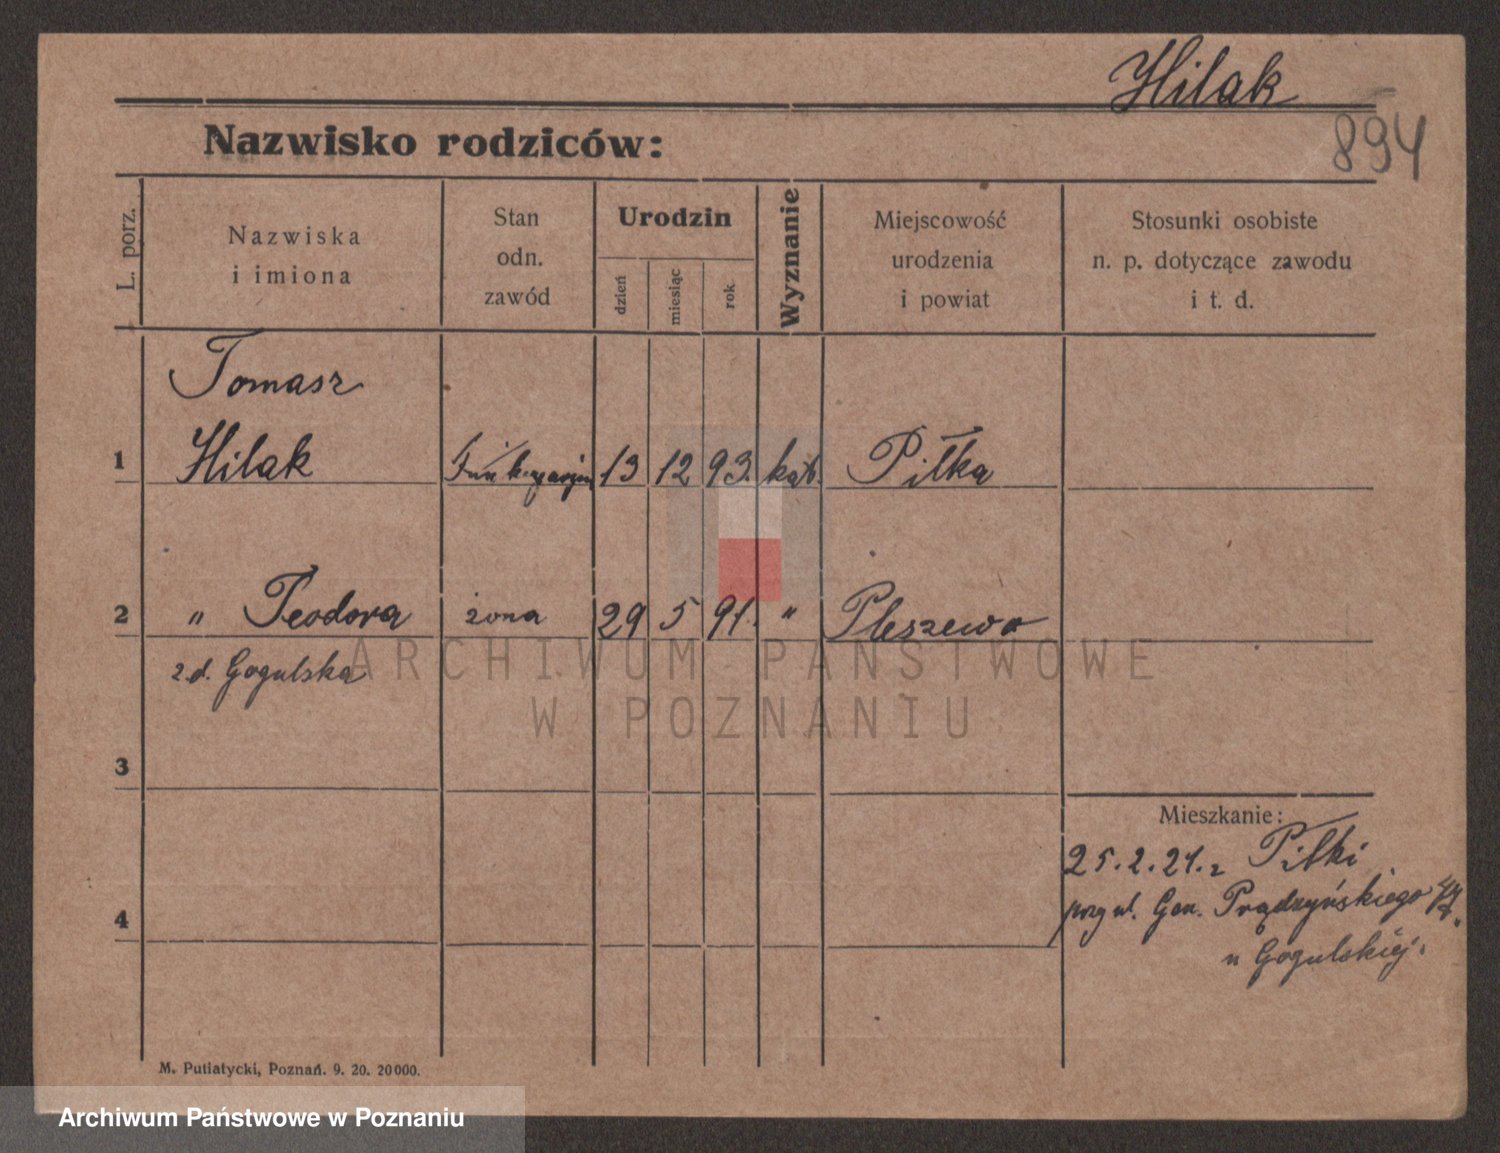 Hilak
894
Nazwisko rodziców:
L. porz.
Nazwiska
i imiona
Stan
odn.
zawód
Urodzin
dzień
miesiąc
rok
Wyznanie
Miejscowość
urodzenia
i powiat
Stosunki osobiste
n. p. dotyczące zawodu
i t. d.
Tomasz
1 Hilak 13 12 93. kat. Piłka
2 " Teodora żona 29 5 91. " Pleszewo
z.d. Gogulska
3
Mieszkanie:
25.2.21. z Piłki
przy ul. Gen. Prądzyńskiego
4
u Gogulskiej.
M. Putiatycki, Poznań. 9. 20. 20000.
ARCHIWUM PAŃSTWOWE
W POZNANIU
Archiwum Państwowe w Poznaniu